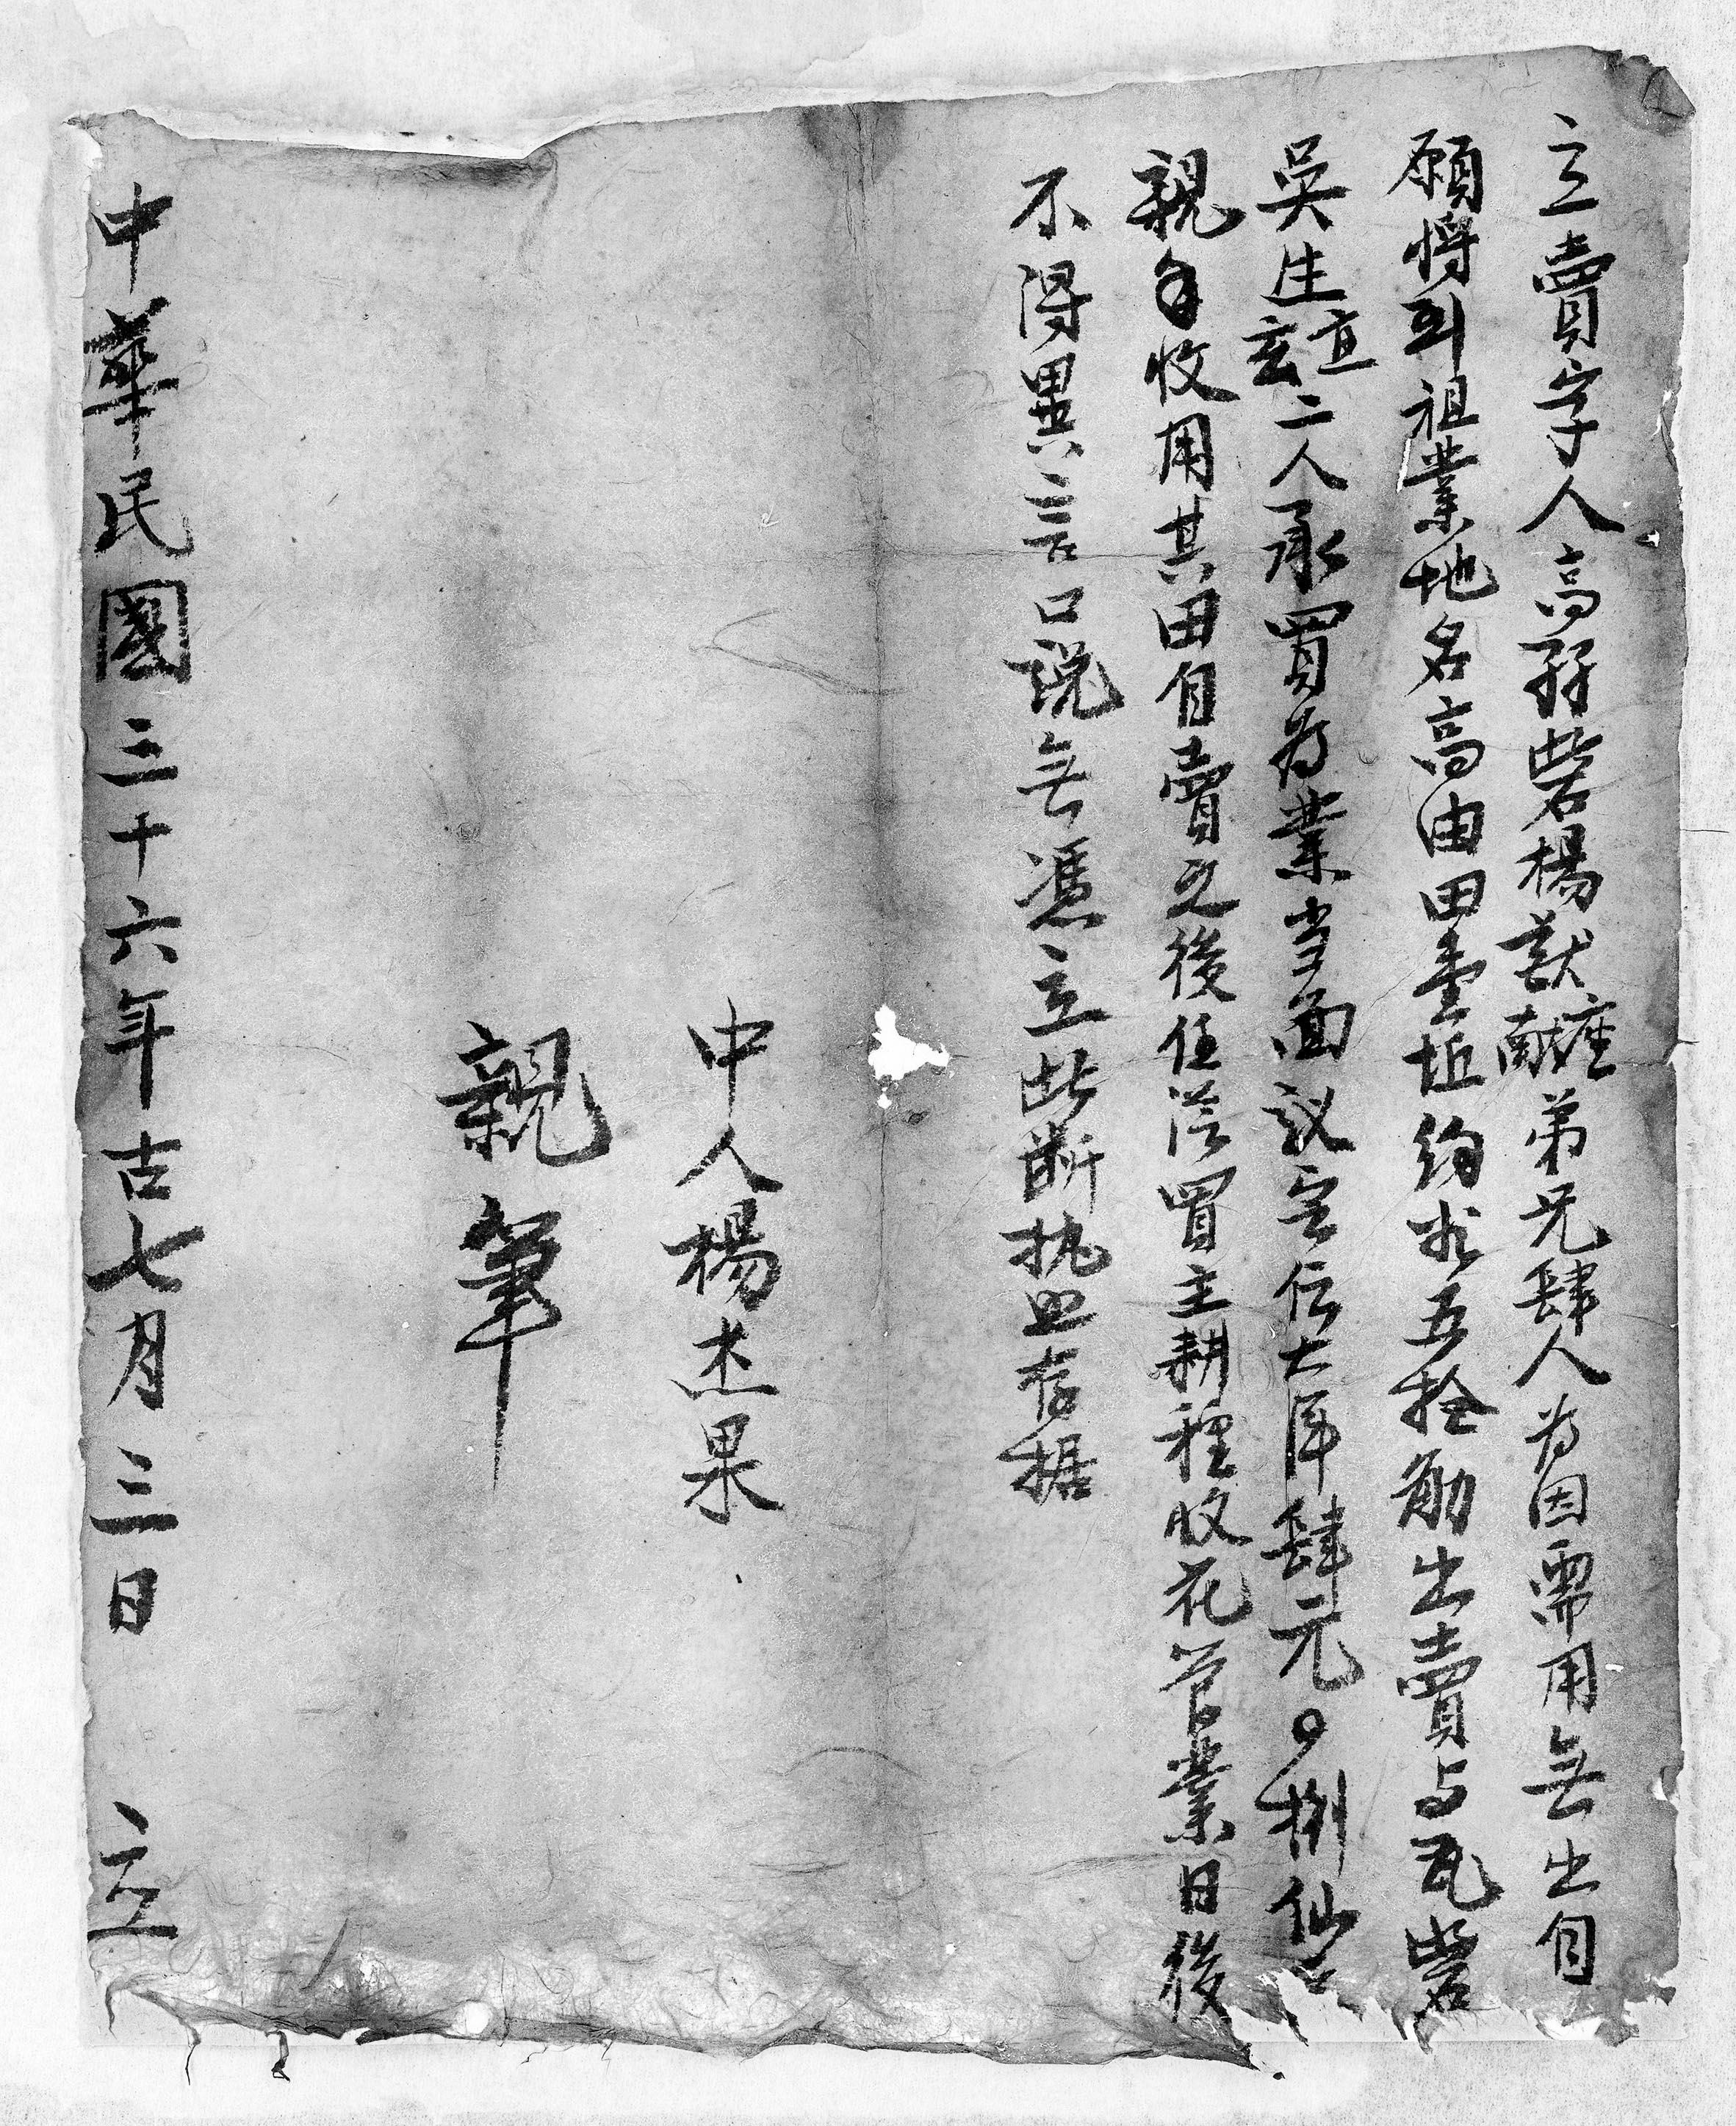 立賣字人高孖砦楊獻廷南弟兄肆人为因需用無出自
願將到祖業地名高由田壹坵約禾五拾觔出賣与瓦砦
吴生宜玄二人承買为業当面议定价大洋肆元〇捌仙
親手收用其田自賣之後任從買主耕種收花管業日後
不得異言口説無憑立此断执照存据
中人楊杰果
親筆
中華民國三十六年古七月三日 立